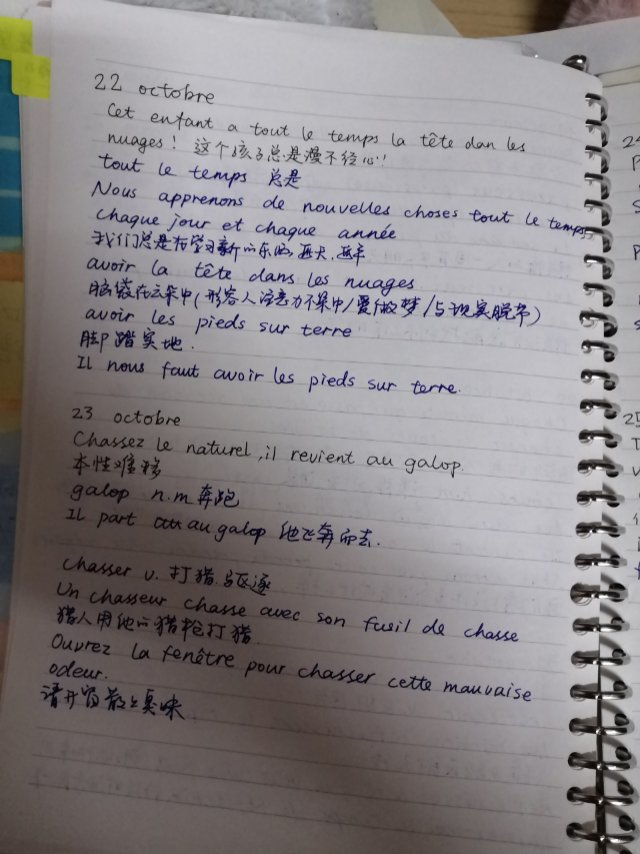 22 octobre
Cet enfant a tout le temps la tête dan les
nuages! 这个孩子总是漫不经心!
tout le temps 总是
Nous apprenons de nouvelles choses tout le temps,
chaque jour et chaque année
我们总是在学习新的东西
avoir la tête dans les nuages
脑袋在云朵中(形容人注意力不集中/爱做梦/与现实脱节)
avoir les pieds sur terre
脚踏实地.
Il nous faut avoir les pieds sur terre.
23 octobre
Chassez le naturel, il revient au galop.
本性难移
galop n.m 奔跑
Il part au galop 他飞奔而去.
chasser v. 打猎.驱逐
Un chasseur chasse avec son fusil de chasse
猎人用他的猎枪打猎.
Ouvrez la fenêtre pour chasser cette mauvaise
odeur.
请开窗散之臭味.
24
P
S
25
T
v